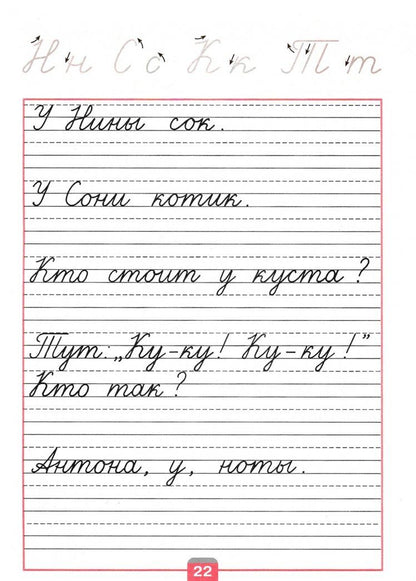 Н н С с К к Т т
У Нины сок.
У Сони котик.
Кто стоит у куста?
Тут: „Ку-ку! Ку-ку!”
Кто так?
Антона, у, ноты.
22